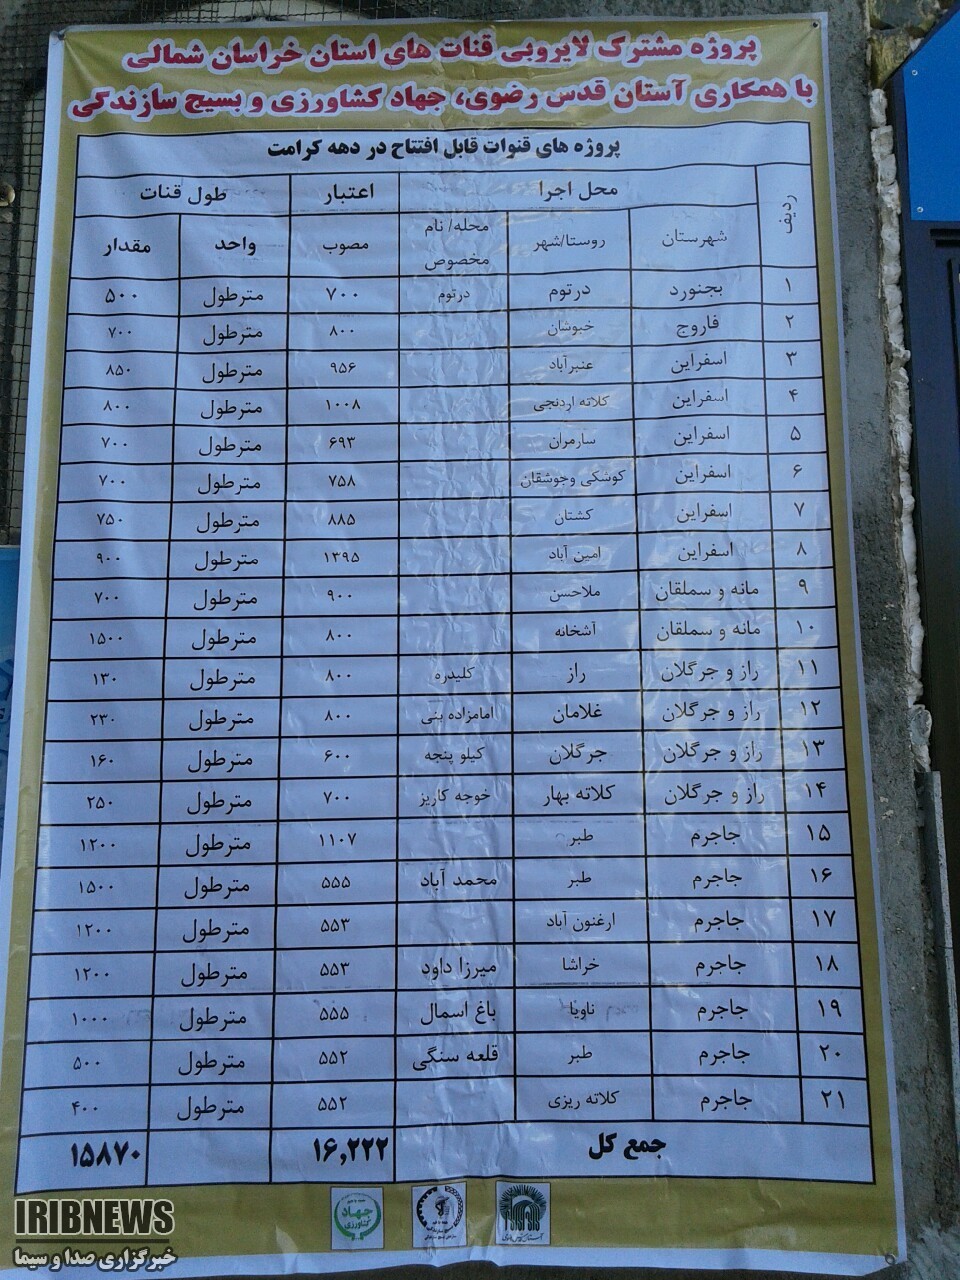 پروژه مشترک لایروبی قنات های استان خراسان شمالی
با همکاری آستان قدس رضوی، جهاد کشاورزی و بسیج سازندگی
پروژه های قنوات قابل افتتاح در دهه کرامت
ردیف محل اجرا اعتبار طول قنات
شهرستان روستا/شهر محله/ نام مخصوص مصوب واحد مقدار
۱ بجنورد درتوم درتوم ۷۰۰ مترطول ۵۰۰
۲ فاروج خبوشان ۸۰۰ مترطول ۷۰۰
۳ اسفراین عنبرآباد ۹۵۶ مترطول ۸۵۰
۴ اسفراین کلاته اردنجی ۱۰۰۸ مترطول ۸۰۰
۵ اسفراین سارمران ۶۹۳ مترطول ۷۰۰
۶ اسفراین کوشکی وجوشقان ۷۵۸ مترطول ۷۰۰
۷ اسفراین کشتان ۸۸۵ مترطول ۷۵۰
۸ اسفراین امین آباد ۱۳۹۵ مترطول ۹۰۰
۹ مانه و سملقان ملاحسن ۹۰۰ مترطول ۷۰۰
۱۰ مانه و سملقان آشخانه ۸۰۰ مترطول ۱۵۰۰
۱۱ راز و جرگلان راز کلیدره ۸۰۰ مترطول ۱۳۰
۱۲ راز و جرگلان غلامان امامزاده بنی ۸۰۰ مترطول ۲۳۰
۱۳ راز و جرگلان جرگلان کیلو پنجه ۶۰۰ مترطول ۱۶۰
۱۴ راز و جرگلان کلاته بهار خوجه کاریز ۷۰۰ مترطول ۲۵۰
۱۵ جاجرم طبر ۱۱۰۷ مترطول ۱۲۰۰
۱۶ جاجرم طبر محمد آباد ۵۵۵ مترطول ۱۵۰۰
۱۷ جاجرم ارغنون آباد ۵۵۳ مترطول ۱۲۰۰
۱۸ جاجرم خراشا میرزا داود ۵۵۳ مترطول ۱۲۰۰
۱۹ جاجرم ناویا باغ اسمال ۵۵۵ مترطول ۱۰۰۰
۲۰ جاجرم طبر قلعه سنگی ۵۵۲ مترطول ۵۰۰
۲۱ جاجرم کلاته ریزی ۵۵۲ مترطول ۴۰۰
جمع کل ۱۶,۲۲۲ ۱۵۸۷۰
جهاد کشاورزی
IRIBNEWS
خبرگزاری صدا و سیما